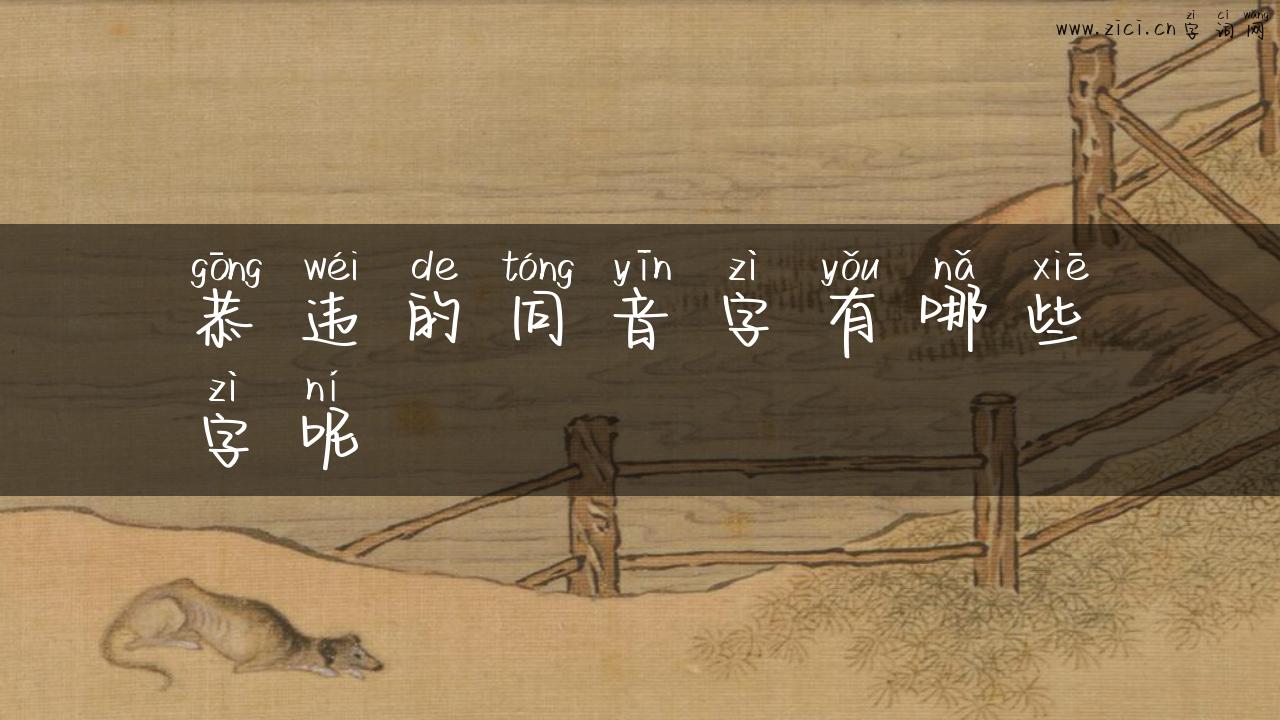 zì cí wǎng
www.zici.cn字词网
gōng wéi de tóng yīn zì yǒu nǎ xiē
恭违的同音字有哪些
zì ní
字呢